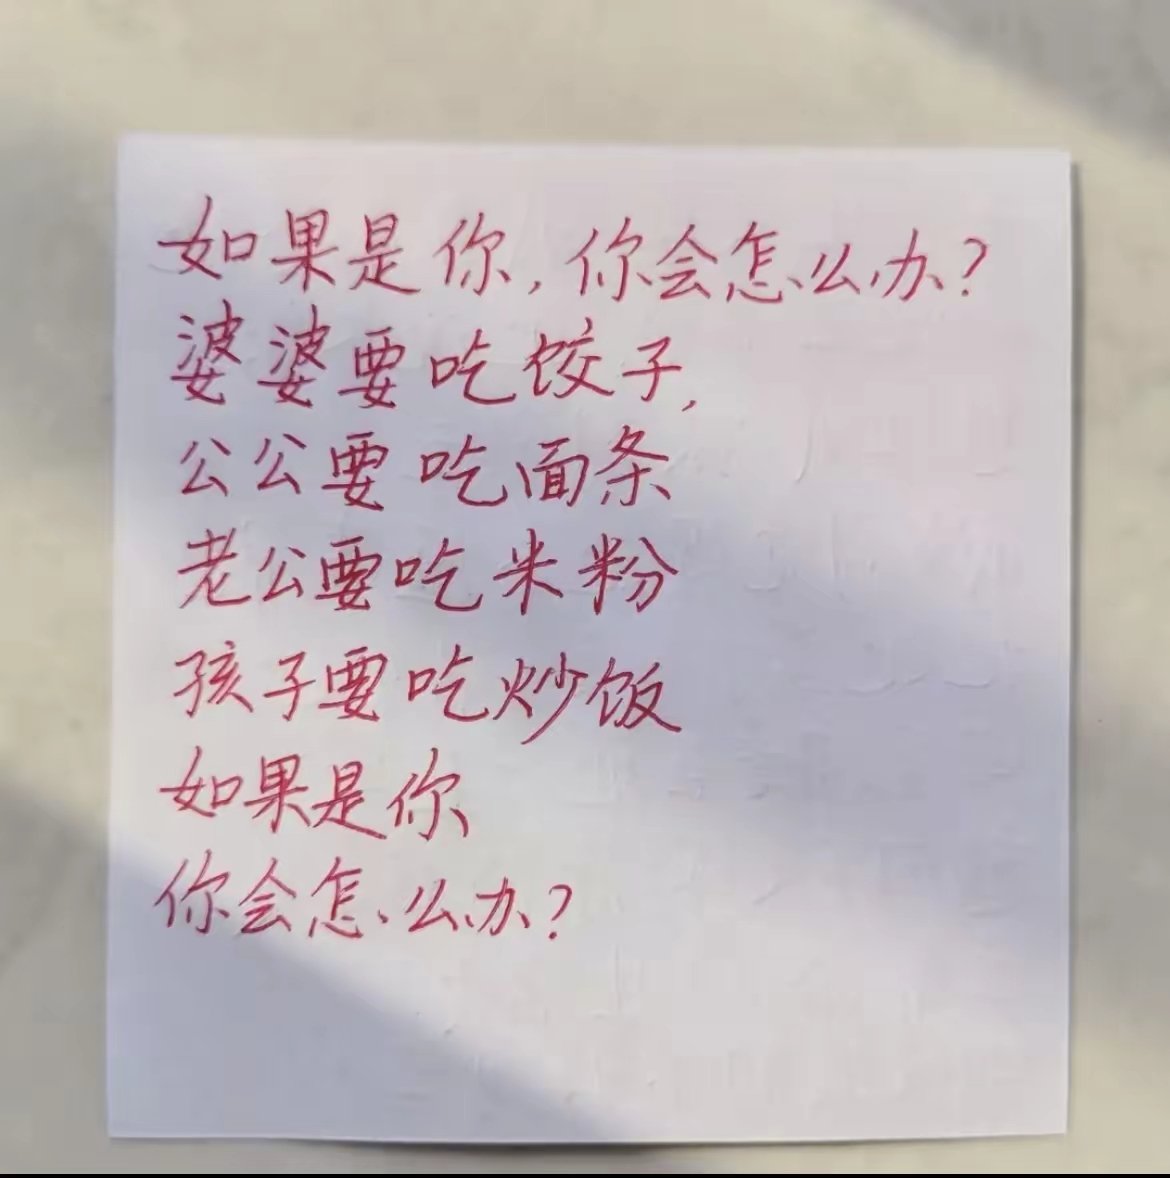 如果是你,你会怎么办?
婆婆要吃饺子,
公公要吃面条
老公要吃米粉
孩子要吃炒饭
如果是你
你会怎么办?